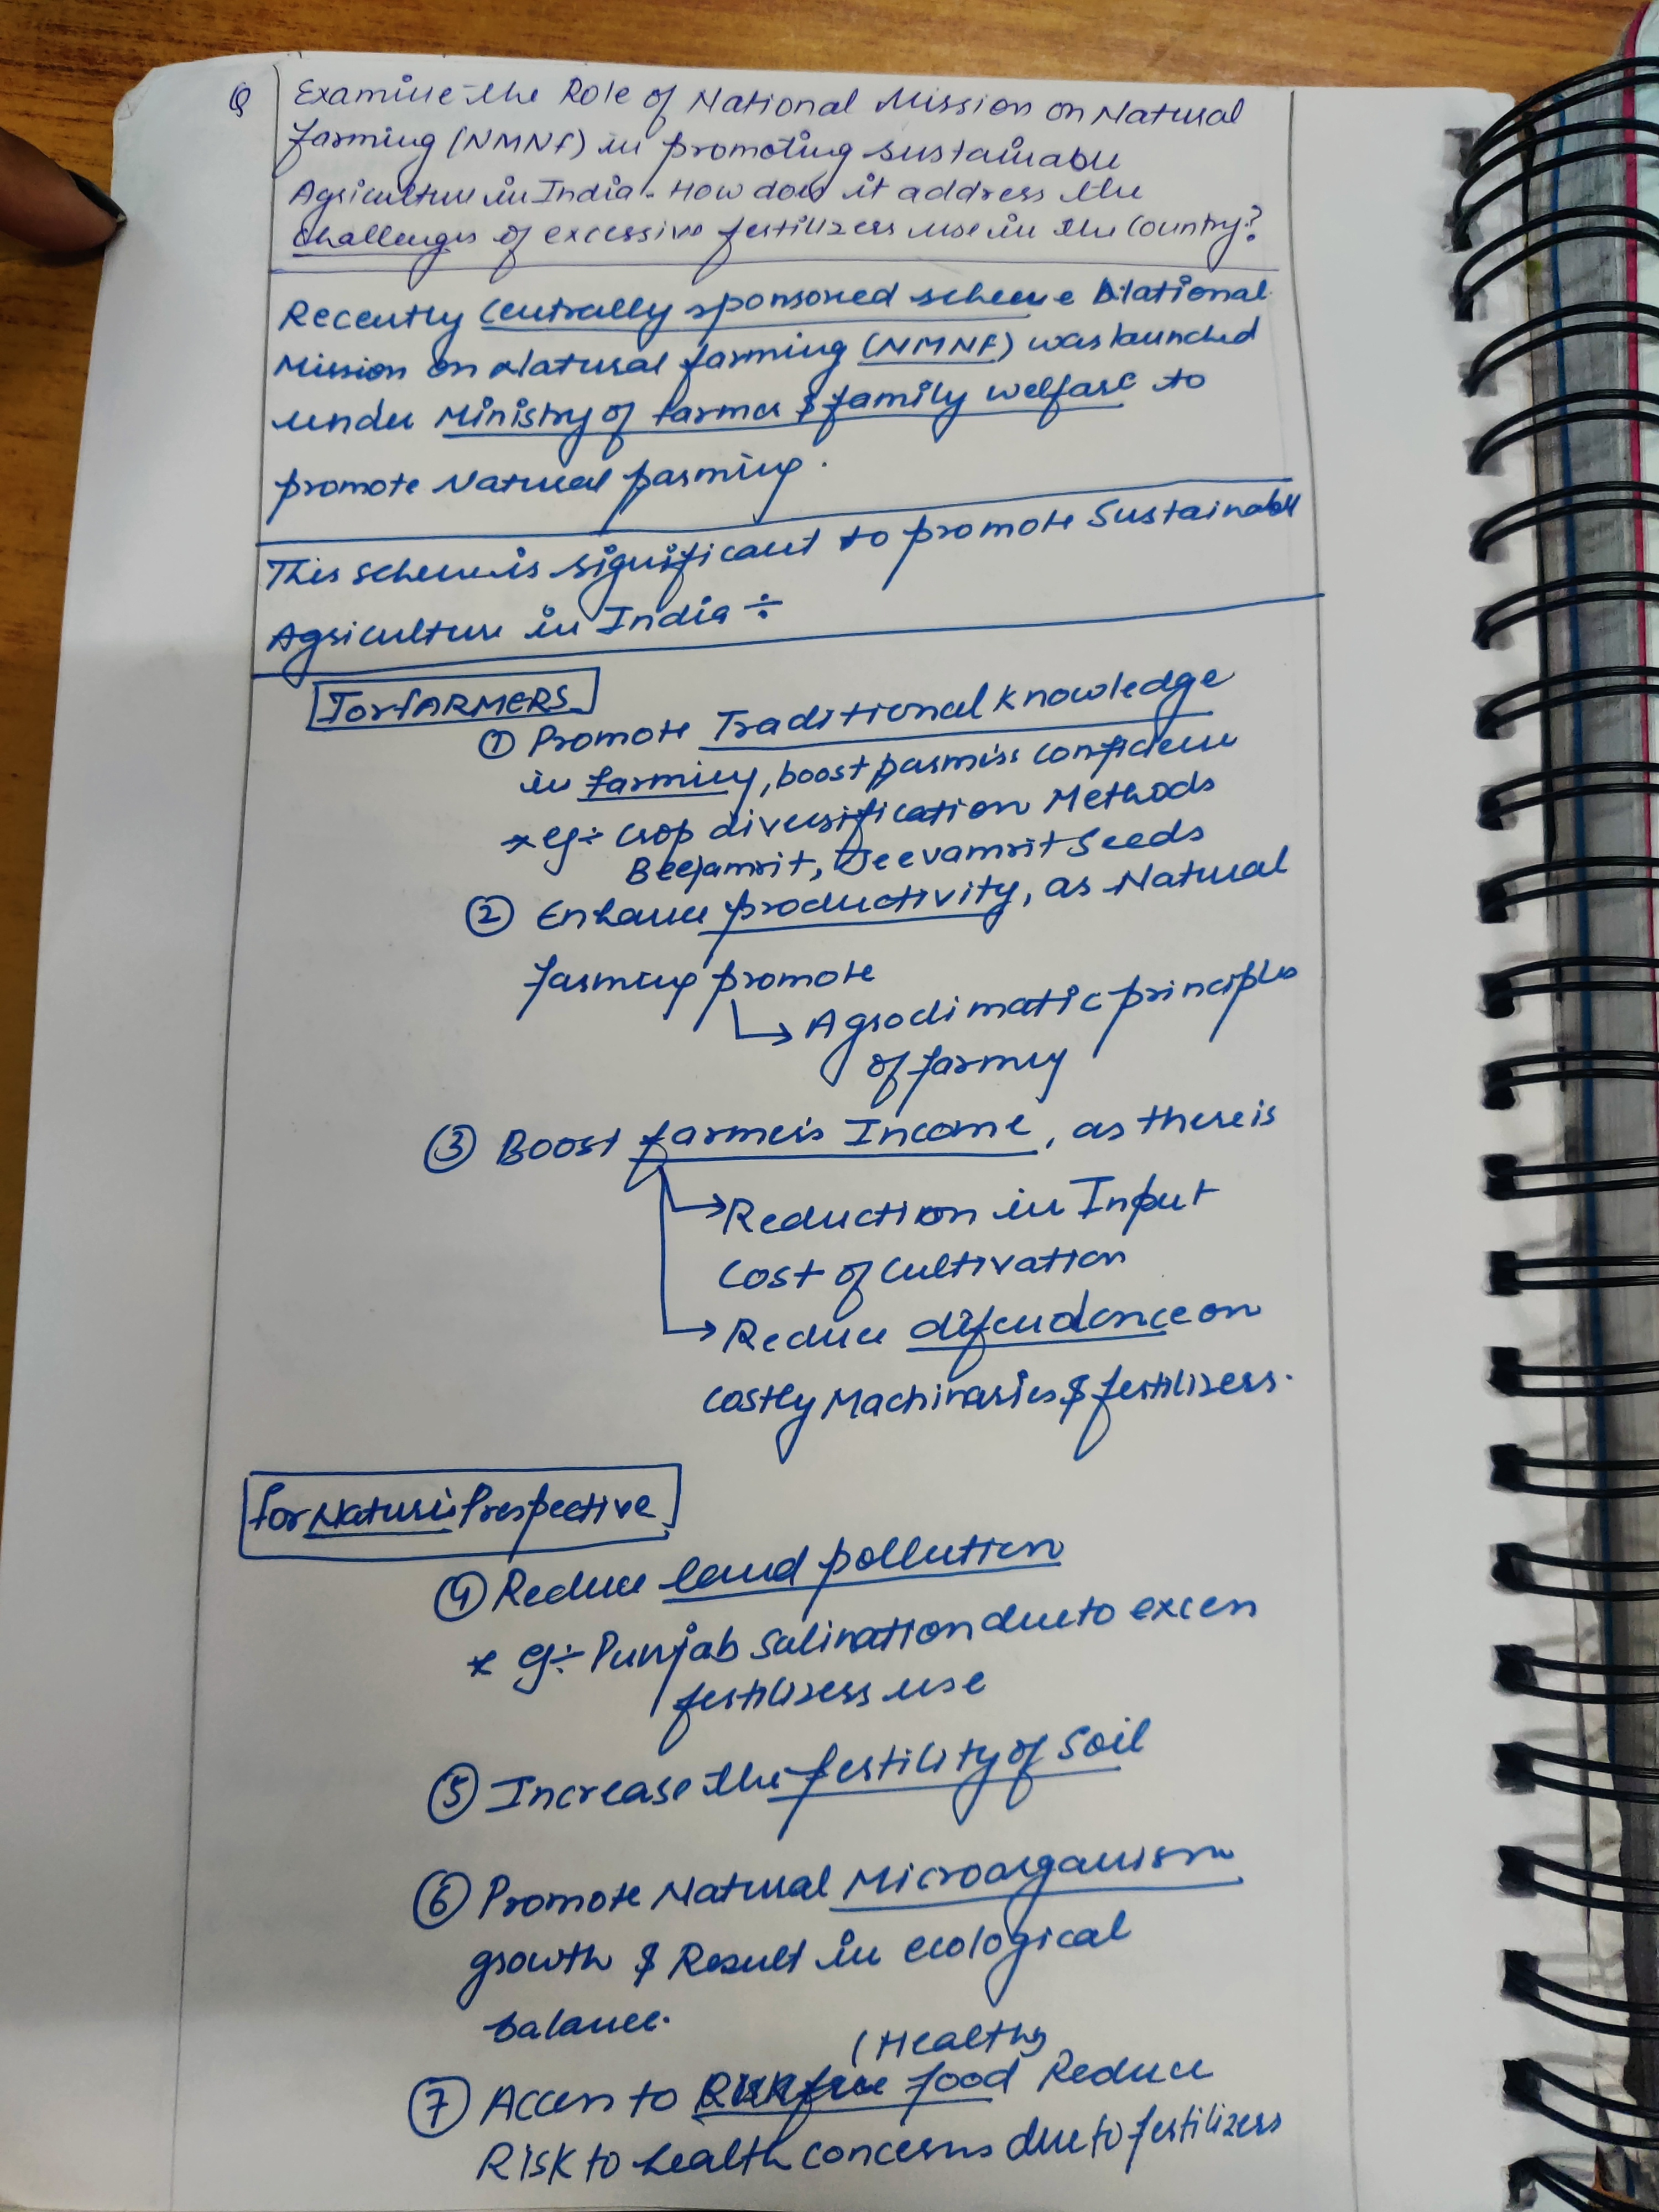 Q Examine the Role of National Mission on Natural
farming (NMNF) in promoting sustainable
Agriculture in India. How does it address the
challenges of excessive fertilizers use in the Country?
Recently Centrally sponsored scheme National
Mission on Natural farming (NMNF) was launched
under Ministry of farmer & family welfare to
promote Natural farming.
This scheme is significant to promote Sustainable
Agriculture in India ÷
For FARMERS
① Promote Traditional knowledge
in farming, boost farmers confidence
* eg÷ Crop diversification Methods
Beejamrit, Jeevamrit Seeds
② Enhance productivity, as Natural
farming promote
↳ Agroclimatic principles
of farming
③ Boost farmer's Income, as there is
→ Reduction in Input
Cost of Cultivation
→ Reduce dependence on
Costly Machinaries & fertilizers.
for Nature's Prespective
④ Reduce land pollution
* eg÷ Punjab Salination due to excess
fertilizers use
⑤ Increase the fertility of Soil
⑥ Promote Natural Microorganism
growth & Result in ecological
balance.
(Healthy
⑦ Access to Risk free food Reduce
Risk to health concerns due to fertilizers